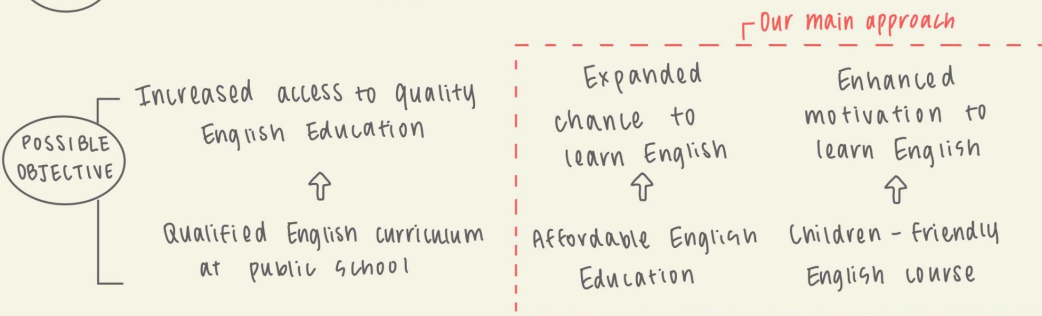 Our main approach
POSSIBLE
OBJECTIVE
Increased access to quality
English Education
Qualified English curriculum
at public school
Expanded
chance to
learn English
Affordable English
Education
Enhanced
motivation to
learn English
Children - friendly
English course